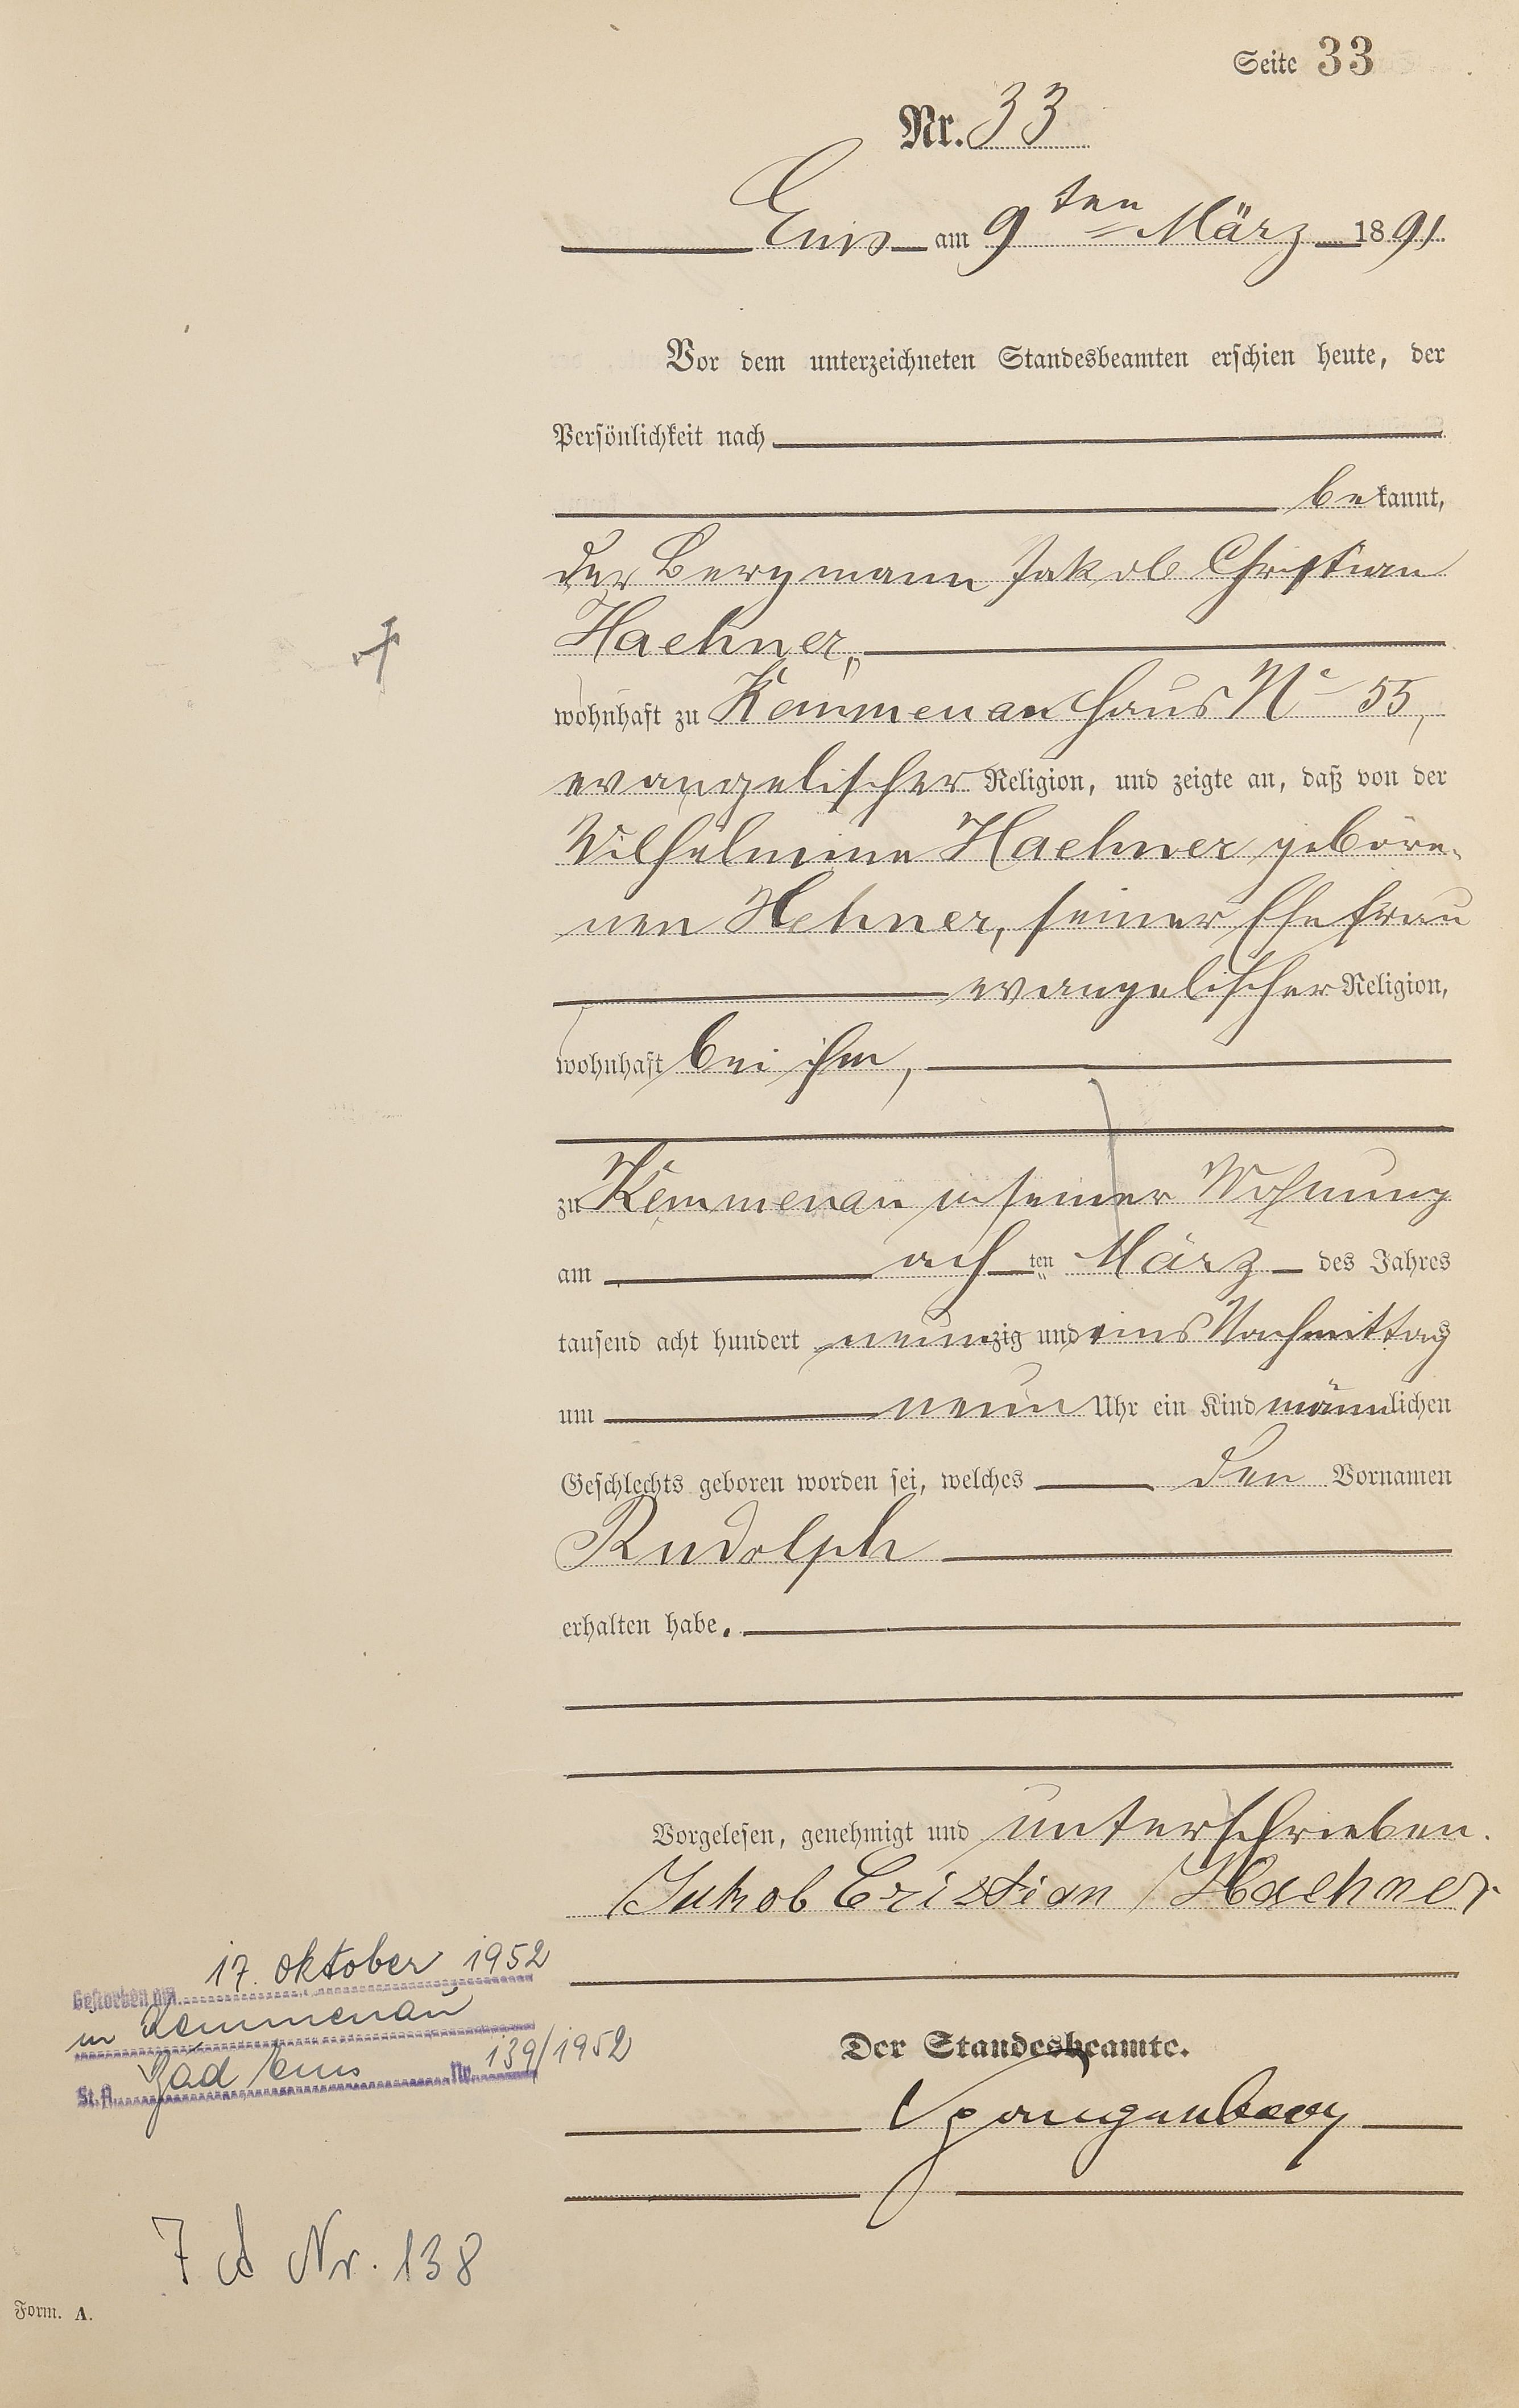 Seite 33
Nr. 33
Ems am 9ten März 1891
Vor dem unterzeichneten Standesbeamten erschien heute, der
Persönlichkeit nach
bekannt,
der Bergmann Jakob Christian
Haehner,
wohnhaft zu Kemmenau Haus No 55,
evangelischer Religion, und zeigte an, daß von der
Wilhelmine Haehner gebore-
nen Hehner, seiner Ehefrau
evangelischer Religion,
wohnhaft bei ihm,
zu Kemmenau in seiner Wohnung
am achten März des Jahres
tausend acht hundert neunzig und eins Nachmittags
um neun Uhr ein Kind männlichen
Geschlechts geboren worden sei, welches den Vornamen
Rudolph
erhalten habe.
Vorgelesen, genehmigt und unterschrieben.
Jakob Cristian Haehner
Der Standesbeamte.
Spangenberg
Gestorben am 17. Oktober 1952
in Kemmenau
St.A. Bad Ems Nr. 139/1952
Nr. 138
Form. A.